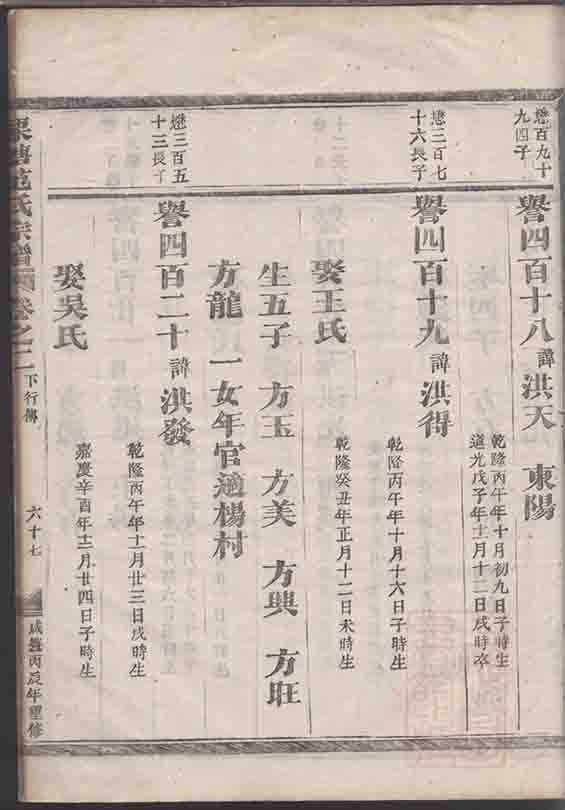 懋百九十
九四子
譽四百十八 諱 洪天 東陽
乾隆丙午年十月初九日子時生
道光戊子年十二月十三日戌時卒
懋三百七
十六長子
譽四百十九 諱 洪得
乾隆丙午年十月十六日子時生
娶王氏
乾隆癸丑年正月十二日未時生
生五子 方玉 方美 方興 方旺
方龍 一女年官適楊村
懋三百五
十三長子
譽四百二十 諱 洪發
乾隆丙午年十二月廿三日戌時生
娶吳氏
嘉慶辛酉年十二月廿四日子時生
范氏宗譜 卷之二 下行傳 六十七 咸豐丙辰年重修